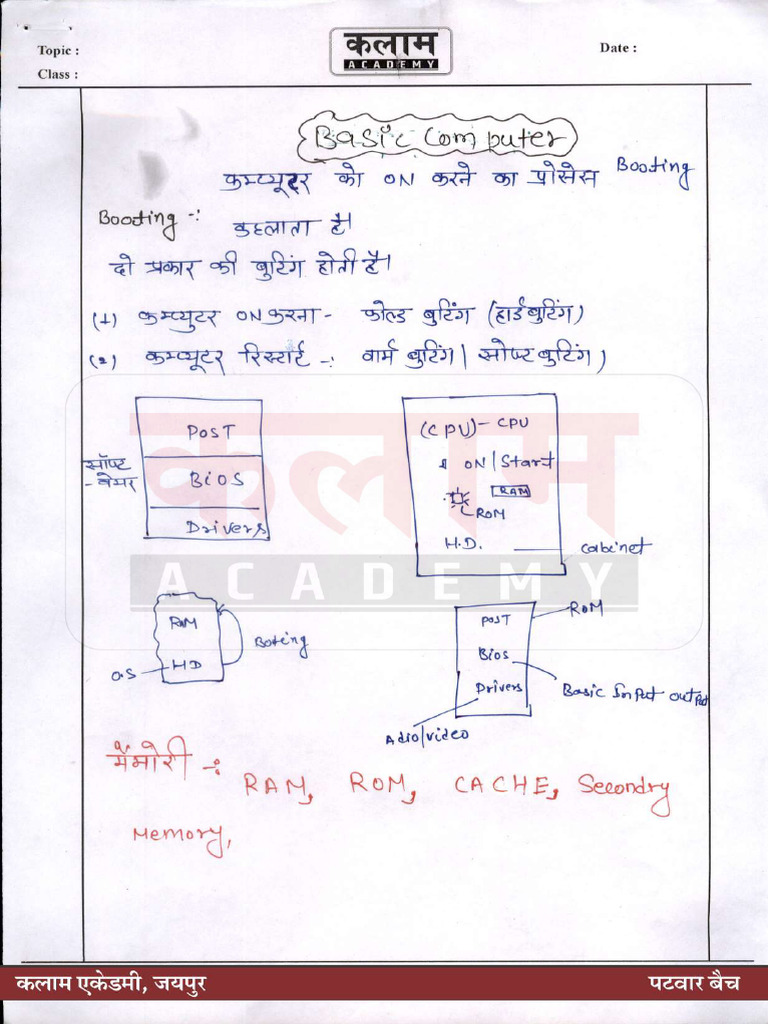 Topic :
कलाम
ACADEMY
Date :
Class :
Basic Computer
कम्प्यूटर को ON करने का प्रोसेस Booting
Booting -: कहलाता है।
दो प्रकार की बुटिंग होती है।
(1) कम्प्युटर ON करना - कोल्ड बुटिंग (हार्ड बुटिंग)
(2) कम्प्यूटर रिस्टार्ट -: वार्म बुटिंग | सोफ्ट बुटिंग )
सॉफ्ट
- वेयर
POST
BiOS
Drivers
(CPU) - CPU
ON | Start
RAM
ROM
H.D.
Cabinet
RAM
HD
O.S
Boting
POST
Bios
Drivers
ROM
Basic Input output
Adio/video
मैमोरी -: RAM, ROM, CACHE, Secondry
Memory,
कलाम
ACADEMY
कलाम एकेडमी, जयपुर
पटवार बैच